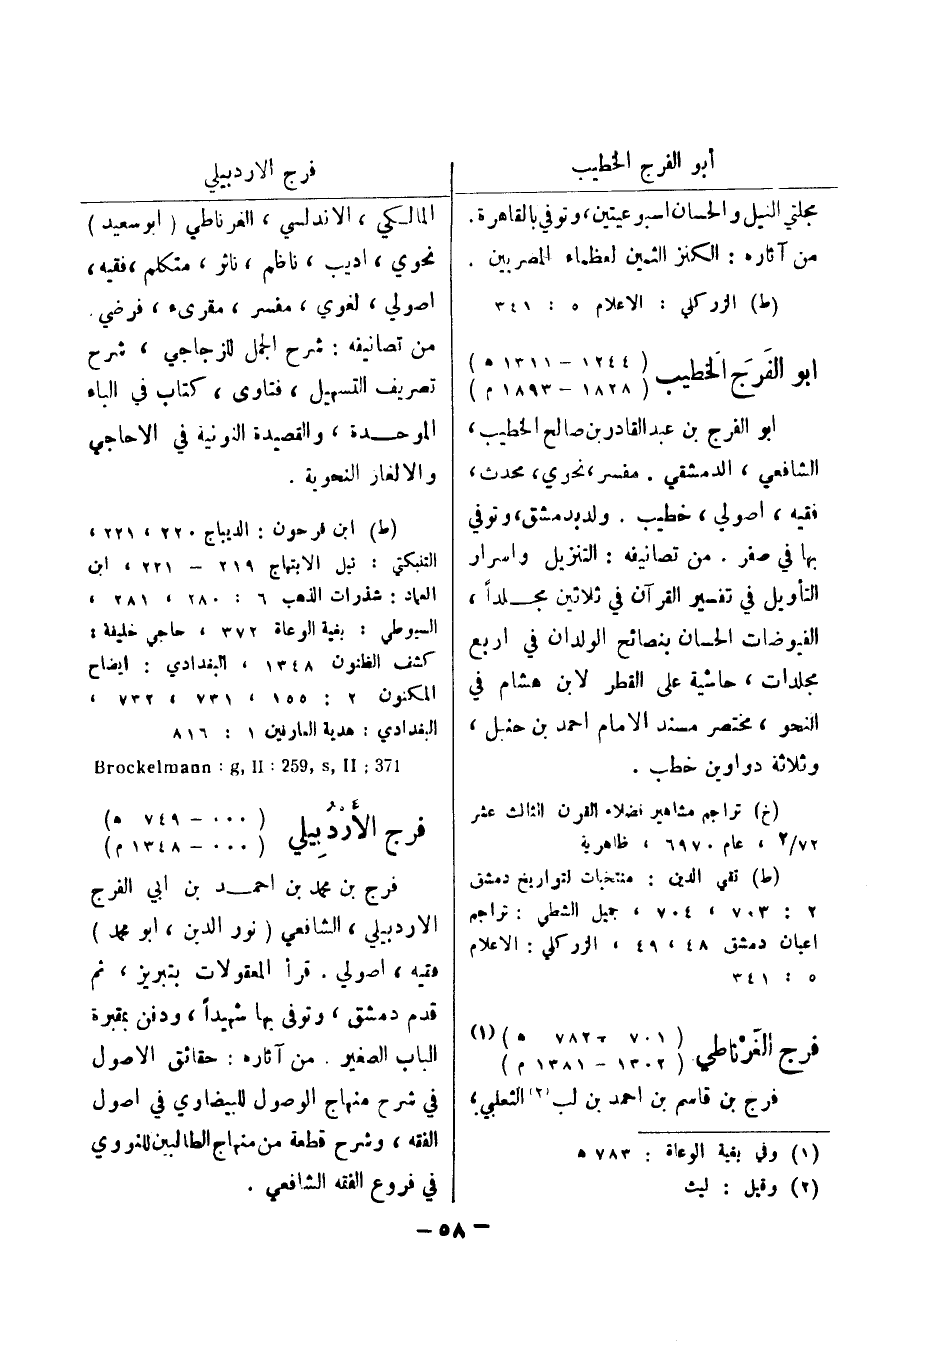 أبو الفرج الخطيب
مجلتي النيل والحسان اسبوعيتين، وتوفي بالقاهرة.
من آثاره : الكنز الثمين لعظماء المصريين .
(ط) الزركلي : الاعلام ٥ : ٣٤١
ابو الفَرَج الخَطيب (١٢٤٤ – ١٣١١ ه)
(١٨٢٨ – ١٨٩٣ م)
ابو الفرج بن عبدالقادر بن صالح الخطيب،
الشافعي ، الدمشقي . مفسر، نحوي، محدث،
فقيه ، اصولي ، خطيب . ولد بدمشق، وتوفي
بها في صفر . من تصانيفه : التنزيل واسرار
التأويل في تفسير القرآن في ثلاثين مجلداً ،
الفيوضات الحسان بنصائح الولدان في اربع
مجلدات ، حاشية على القطر لابن هشام في
النحو ، مختصر مسند الامام احمد بن حنبل ،
وثلاثة دواوين خطب .
(خ) تراجم مشاهير فضلاء القرن الثالث عشر
٢/٧٢ ، عام ٦٩٧٠ ، ظاهرية
(ط) تقي الدين : منتخبات لتواريخ دمشق
٢ : ٧٠٣ ، ٧٠٤ ، جميل الشطي : تراجم
اعيان دمشق ٤٨ ، ٤٩ ، الزركلي : الاعلام
٥ : ٣٤١
فرج الغَرْناطي (٧٠١ – ٧٨٢ ه) (١)
(١٣٠٢ – ١٣٨١ م)
فرج بن قاسم بن احمد بن لب (٢) الثعلبي،
(١) وفي بغية الوعاة : ٧٨٣ ه
(٢) وقيل : ليث
فرج الاردبيلي
المالكي ، الاندلسي ، الغرناطي (ابو سعيد)
نحوي ، اديب ، ناظم ، ناثر ، متكلم ، فقيه ،
اصولي ، لغوي ، مفسر ، مقرىء ، فرضي.
من تصانيفه : شرح الجمل للزجاجي ، شرح
تصريف التسهيل ، فتاوى ، كتاب في الباء
الموحدة ، والقصيدة النونية في الاحاجي
والالغاز النحوية .
(ط) ابن فرحون : الديباج ٢٢٠ ، ٢٢١ ،
التنبكتي : نيل الابتهاج ٢١٩ – ٢٢١ ، ابن
العماد : شذرات الذهب ٦ : ٢٨٠ ، ٢٨١ ،
السيوطي : بغية الوعاة ٣٧٢ ، حاجي خليفة :
كشف الظنون ١٣٤٨ ، البغدادي : ايضاح
المكنون ٢ : ١٥٥ ، ٧٣١ ، ٧٣٢ ،
البغدادي : هدية العارفين ١ : ٨١٦
Brockelmann : g, II : 259, s, II ; 371
فرج الأَرْدُبِيلي (٠٠٠ – ٧٤٩ ه)
(٠٠٠ – ١٣٤٨ م)
فرج بن محمد بن احمد بن ابي الفرج
الاردبيلي ، الشافعي (نور الدين ، ابو محمد)
فقيه ، اصولي . قرأ المعقولات بتبريز ، ثم
قدم دمشق ، وتوفى بها شهيداً ، ودفن بمقبرة
الباب الصغير . من آثاره : حقائق الاصول
في شرح منهاج الوصول للبيضاوي في اصول
الفقه ، وشرح قطعة من منهاج الطالبين للنووي
في فروع الفقه الشافعي .
– ٥٨ –